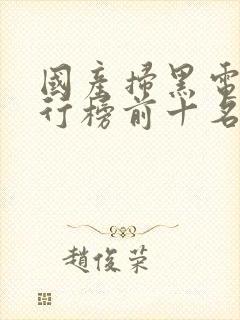 國產掃黑電
行榜前十名
趙俊榮